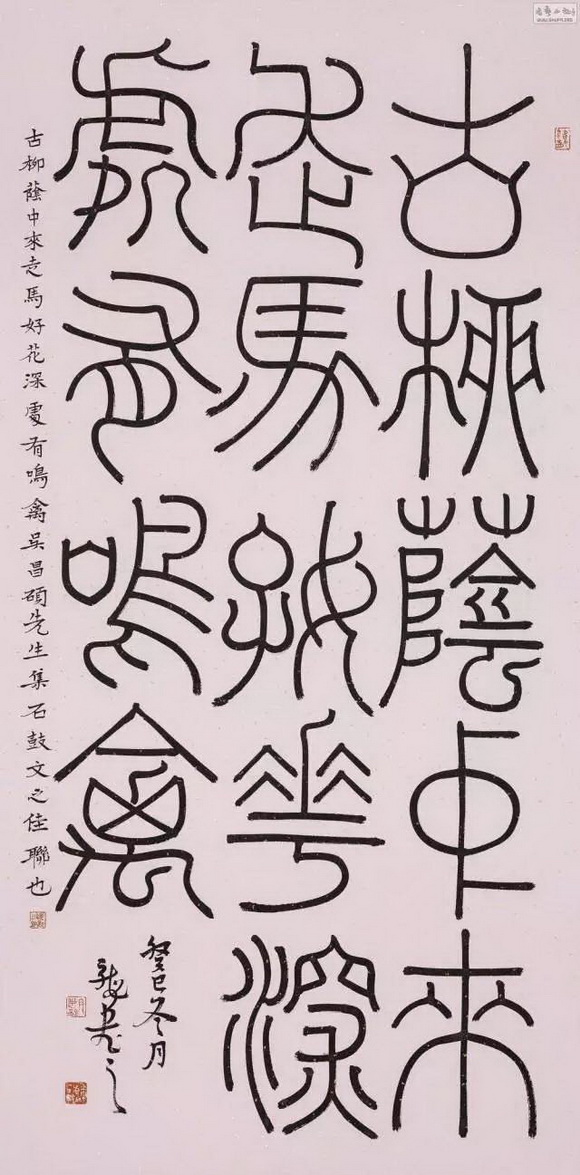 古柳蔭中來
走馬好花深
處有鳴禽
古柳蔭中來走馬好花深處有鳴禽吳昌碩先生集石鼓文之佳聯也
癸巳冬月